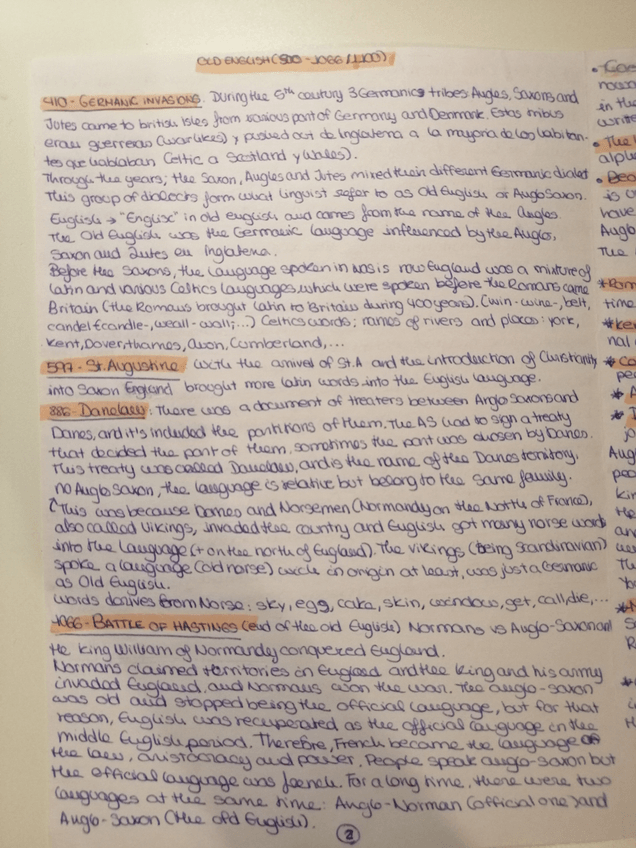 OLD ENGLISH (500 - 1066/1100)
410 - GERMANIC INVASIONS. During the 5th century 3 Germanics tribes Angles, Saxons and
Jutes came to british Isles from various part of Germany and Denmark. Estas tribus
eran guerreras (warlikes) y pushed out de Inglaterra a la mayoría de los habitan-
tes que hablaban Celtic a Scotland y Wales).
Through the years; the Saxon, Angles and Jutes mixed their different Germanic dialet
This group of dialects form what linguist refer to as Old English or Anglosaxon.
English → "Englisc" in old english and comes from the name of the Angles.
The Old English was the Germanic language influenced by the Anglos,
Saxon and Jutes en Inglaterra.
Before the Saxons, the language spoken in was is now England was a mixture of
latin and various Celtics languages, which were spoken before the Romans came
Britain (the Romans brought latin to Britain during 400 years). (win-wine-, belt,
candel-candle-, weall-wall;...) Celtics words: names of rivers and places: york,
Kent, Dover, thames, Avon, Cumberland,...
597 - St. Augustine with the arrival of St.A and the introduction of Christianity
into Saxon England brought more latin words into the English language.
886 - Danelaw: There was a document of treaters between Anglo Saxons and
Danes, and it's included the partitions of them. The AS had to sign a treaty
that decided the part of them, sometimes the part was chosen by Danes.
This treaty was called Danelaw, and is the name of the Danes territory.
no Anglo Saxon, the language is relative but belong to the same family.
(This was because Danes and Norsemen (Normandy on the North of France),
also called vikings, invaded the country and English got many norse words
into the language (+ on the north of England). The vikings (being Scandinavian)
spoke a language (old norse) wich in origin at least, was just a Germanic
as Old English.
words derives from Norse: sky, egg, cake, skin, window, get, call, die,...
1066 - BATTLE OF HASTINGS (end of the old English) Normans vs Anglo-Saxon
He king William of Normandy conquered England.
Normans claimed territories in England and the king and his army
invaded England, and Normans won the war. The anglo-saxon
was old and stopped being the official language, but for that
reason, English was recuperated as the official language in the
middle English period. Therefore, French became the language of
the law, aristocracy and power. People speak anglo-saxon but
the official language was french. For a long time, there were two
languages at the same time: Anglo-Norman (official one) and
Anglo-Saxon (the old English).
2